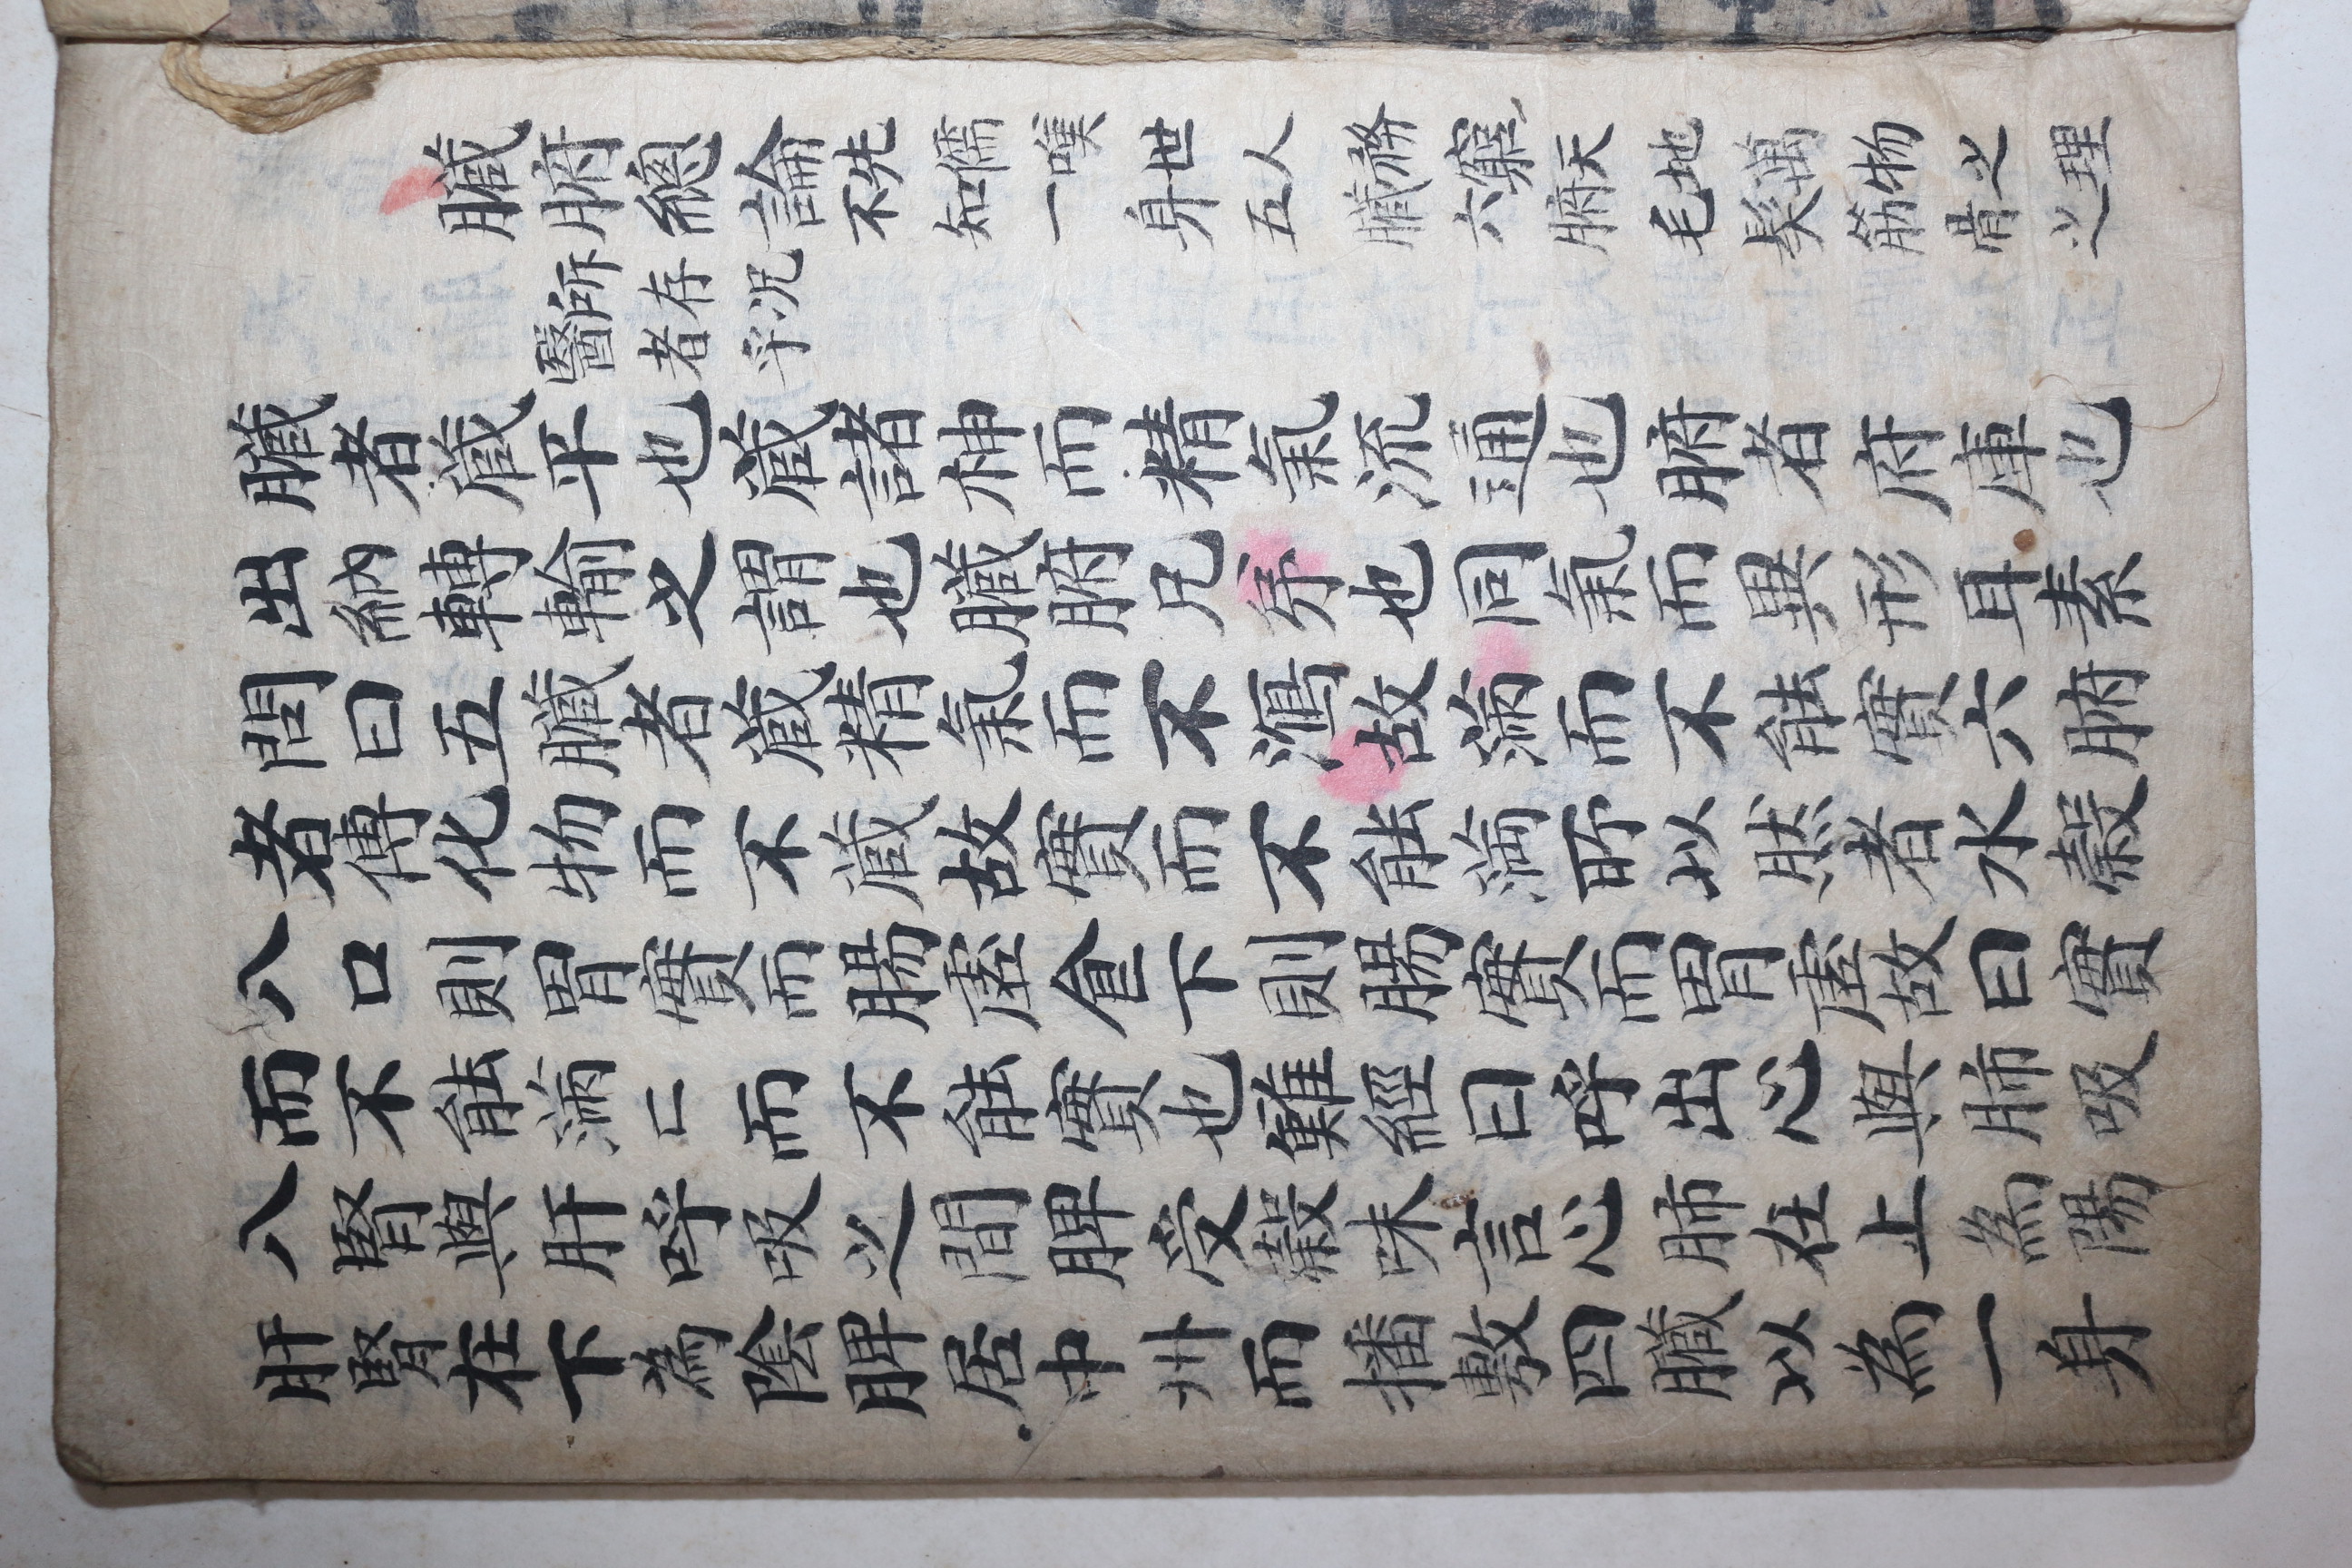 臟腑總論
先儒嘆世人務窮天地萬物之理
不知一身五臟六腑毛髮筋骨之
所存況
醫者乎
臟者藏平也藏諸神而精氣流通也腑者府庫也
出納轉輸之謂也臟腑兄弟也同氣而異形耳素
問曰五臟者藏精氣而不瀉故滿而不能實六腑
者傳化物而不藏故實而不能滿所以然者水穀
入口則胃實而腸虛食下則腸實而胃虛故曰實
而不能滿〻而不能實也難經曰呼出心與肺吸
入腎與肝呼吸之間脾受穀味言心肺在上為陽
肝腎在下為陰脾居中州而播敷四臟以為一身